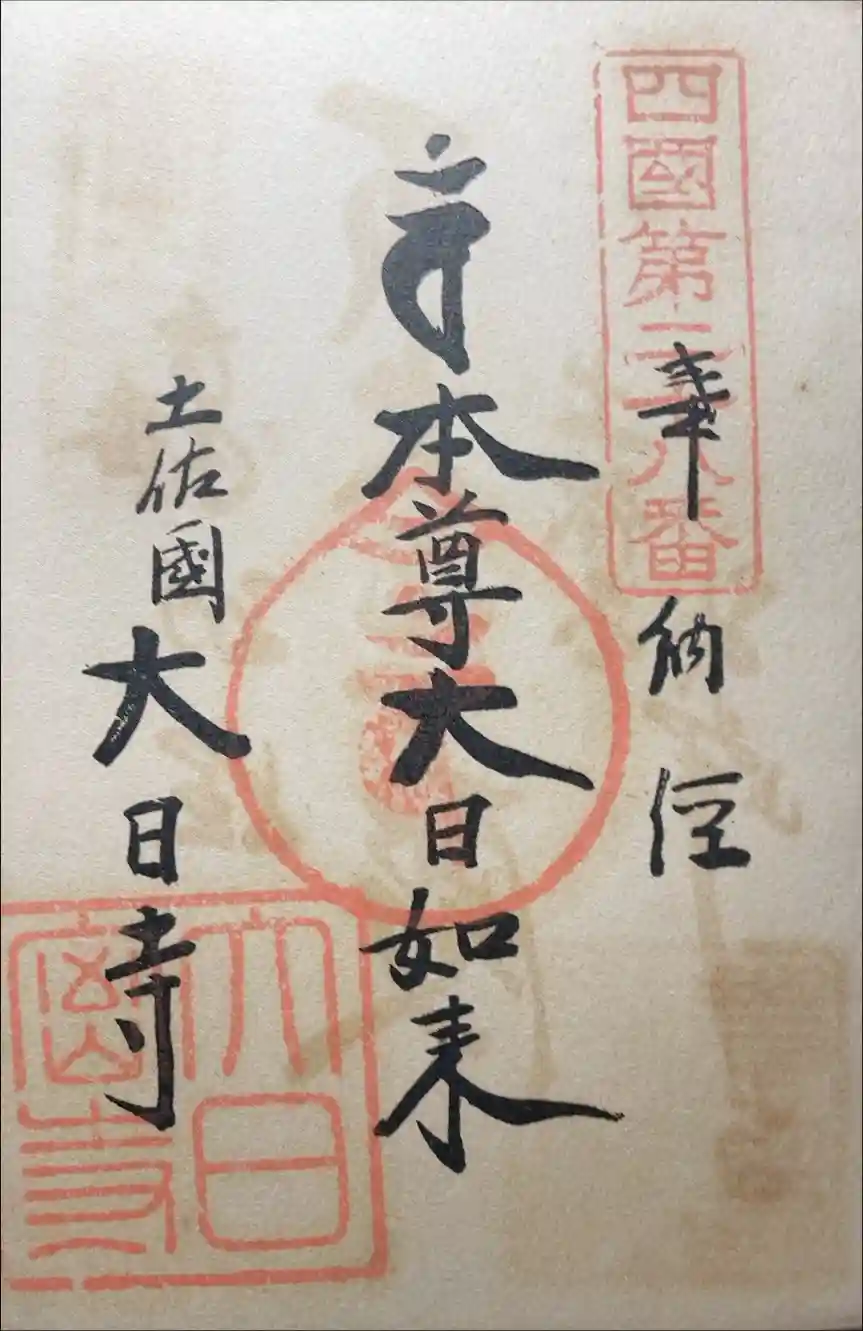 四國第二十八番
奉納経
本尊大日如来
土佐國大日寺
大日密寺